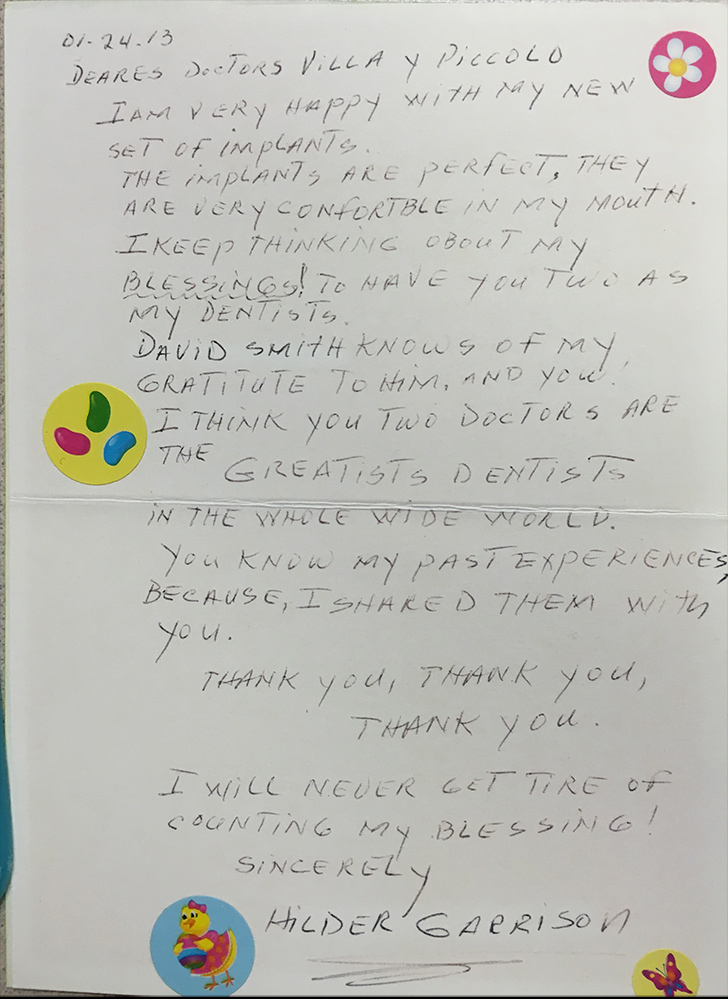 01-24.13
DEARES DOCTORS VILLA Y PICCOLO
I AM VERY HAPPY WITH MY NEW
SET OF IMPLANTS.
THE IMPLANTS ARE PERFECT, THEY
ARE VERY CONFORTBLE IN MY MOUTH.
I KEEP THINKING OBOUT MY
BLESSINGS! TO HAVE YOU TWO AS
MY DENTISTS.
DAVID SMITH KNOWS OF MY
GRATITUTE TO HIM, AND YOU!
I THINK YOU TWO DOCTORS ARE
THE GREATISTS DENTISTS
IN THE WHOLE WIDE WORLD.
YOU KNOW MY PAST EXPERIENCES,
BECAUSE, I SHARED THEM WITH
YOU.
THANK YOU, THANK YOU,
THANK YOU.
I WILL NEVER GET TIRE OF
COUNTING MY BLESSING!
SINCERELY
HILDER GARRISON